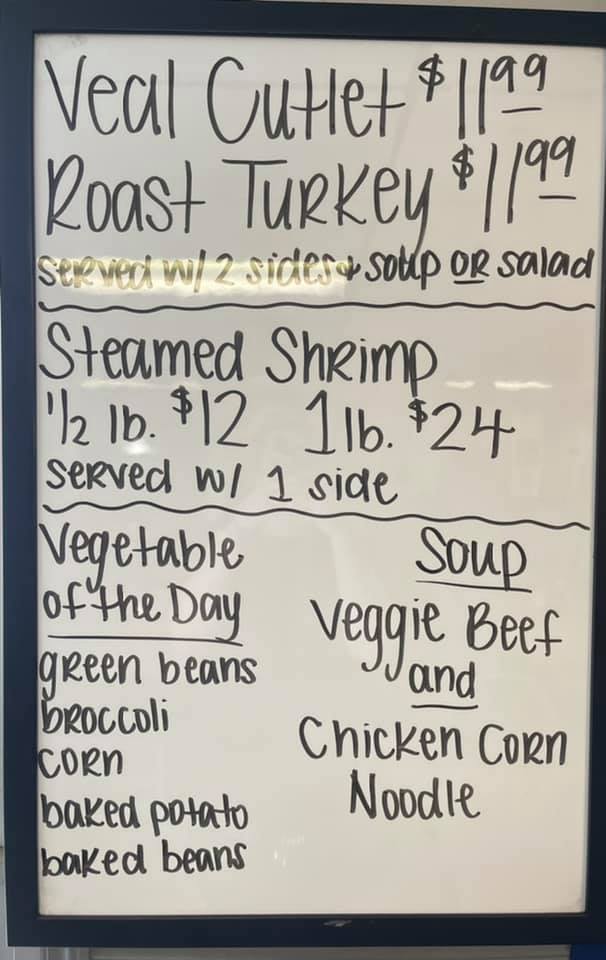 Veal Cutlet $11.99
Roast Turkey $11.99
served w/ 2 sides & soup OR salad
Steamed Shrimp
1/2 lb. $12 1 lb. $24
served w/ 1 side
Vegetable
of the Day
green beans
broccoli
corn
baked potato
baked beans
Soup
Veggie Beef
and
Chicken Corn
Noodle